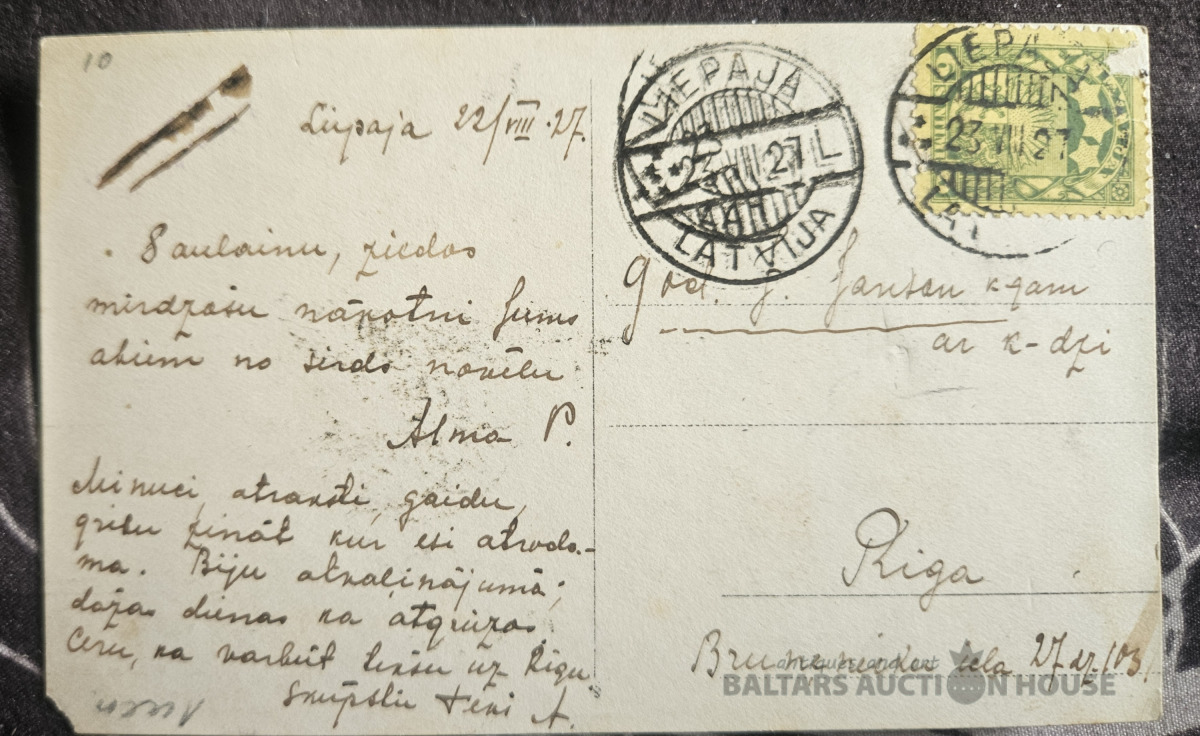 10
Liepaja 22/VIII.27.
Saulainu, ziedos
mirdzošu nākotni Jums
abiem no sirds novēlu
Alma P.
Minuci, atraksti, gaidu,
gribu zināt kur esi atroda-
ma. Biju atvaļinājumā;
dažas dienas ka atgriezos
Ceru, ka varbūt tikšu uz Rīgu
Skūpstu Teri A.
LIEPAJA
VIII 27 L
LATVIJA
LIEPAJA
23 VIII 27
LAT
2
God. J. Jansan kgam
ar k-dzi
Riga
iela 27 dz. 103
antiques and art
BALTARS AUCTION HOUSE